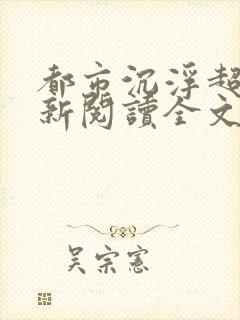 都市沉浮超
新閱讀全文
吳宗憲